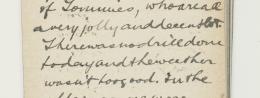 of Tommies, who are all
a very jolly and decent lot.
There was no drill done
today and the weather
wasn't too good. In the